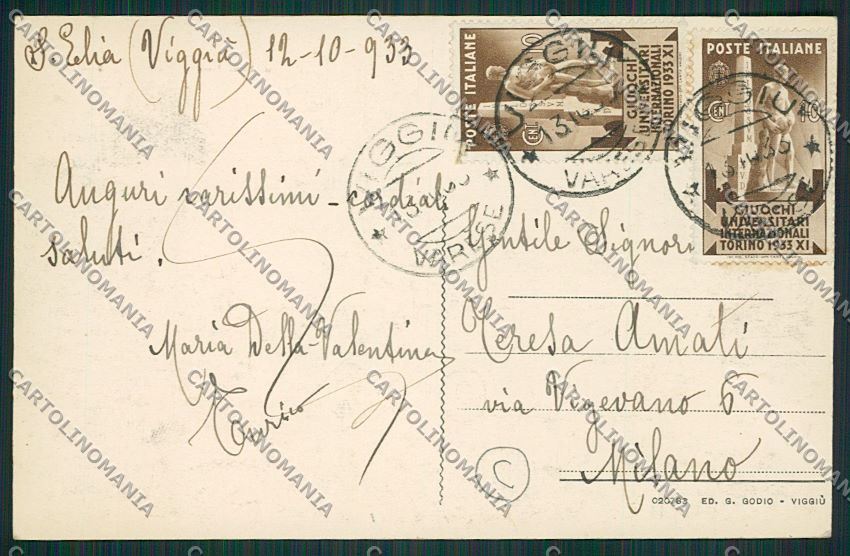 S. Elia (Viggiù) 12-10-933
Auguri carissimi - cordiali
saluti.
Maria Della-Valentina
Enrico
POSTE ITALIANE
10
CENT
GIUOCHI
UNIVERSITARI
INTERNAZIONALI
TORINO 1933 XI
POSTE ITALIANE
CENT 10
GIUOCHI
UNIVERSITARI
INTERNAZIONALI
TORINO 1933 XI
VIGGIÙ
VARESE
VIGGIÙ
VARESE
VIGGIÙ
Gentile Signora
Teresa Amati
via Vigevano 6
Milano
C
020763 ED. G. GODIO - VIGGIÙ
CARTOLINOMANIA